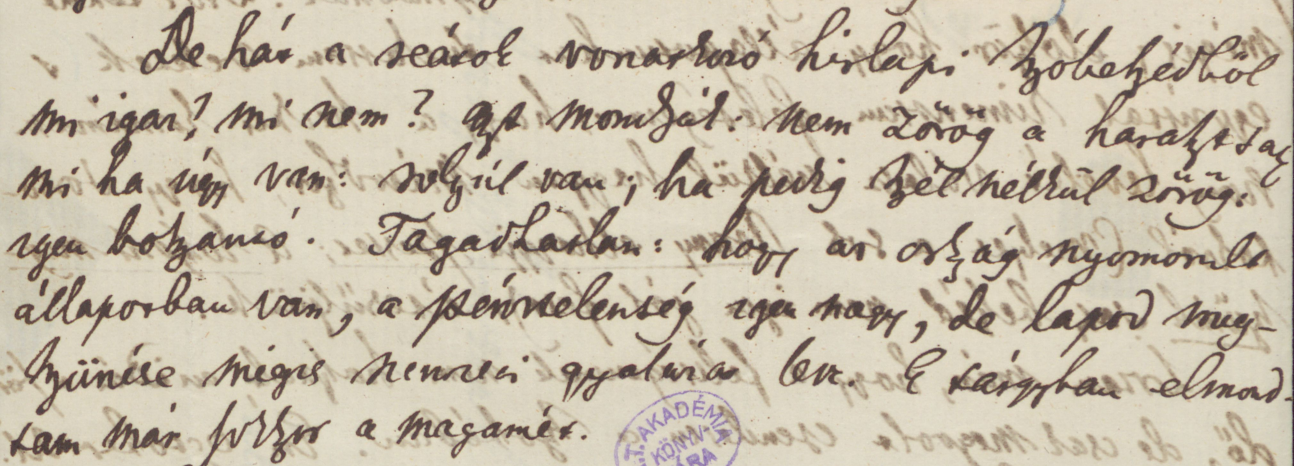 De hát a reátok vonatkozó hirlapi szóbeszédből
mi igaz? mi nem? Azt mondják: nem zörög a haraszt sat
mi ha úgy van: roszúl van; ha pedig szél nélkül zörög:
igen boszantó. Tagadhatlan: hogy az ország nyomorult
állapotban van, a pénztelenség igen nagy, de lapod meg-
szünése mégis nemzeti gyalázat lenne. E tárgyban elmond-
tam már sokszor a magamét.
M. T. AKADÉMIA
KÖNYV
TÁRA